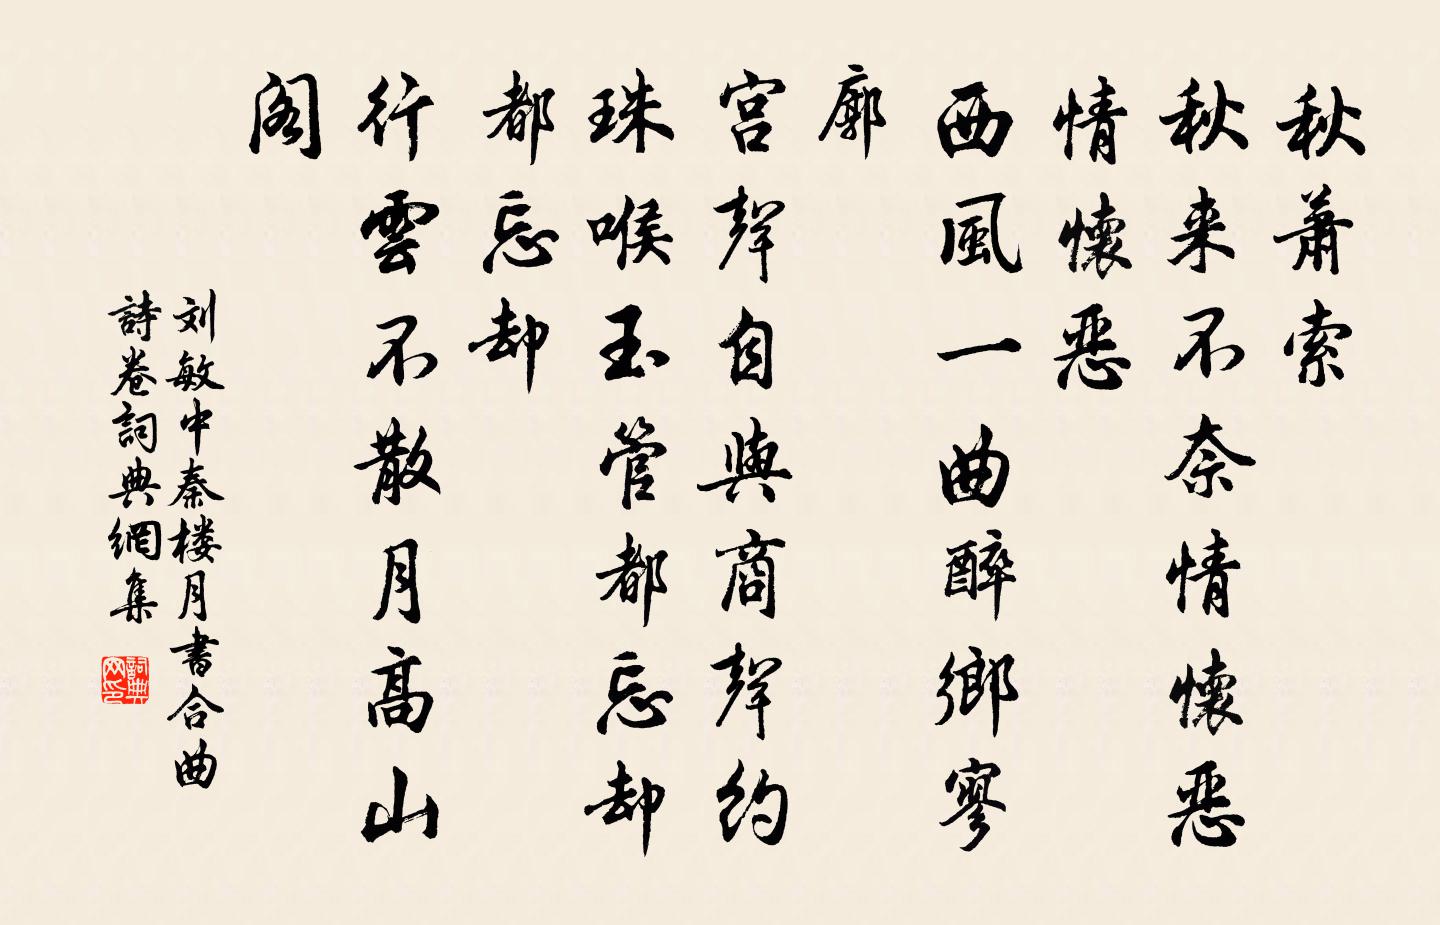 秋萧索
秋来不奈情懷恶
情懷恶
西風一曲醉鄉寥
廓
宫聲自與商聲约
珠喉玉管都忘却
都忘却
行雲不散月高山
阁
刘敏中秦楼月书合曲
詩卷詞典網集
詞典网印